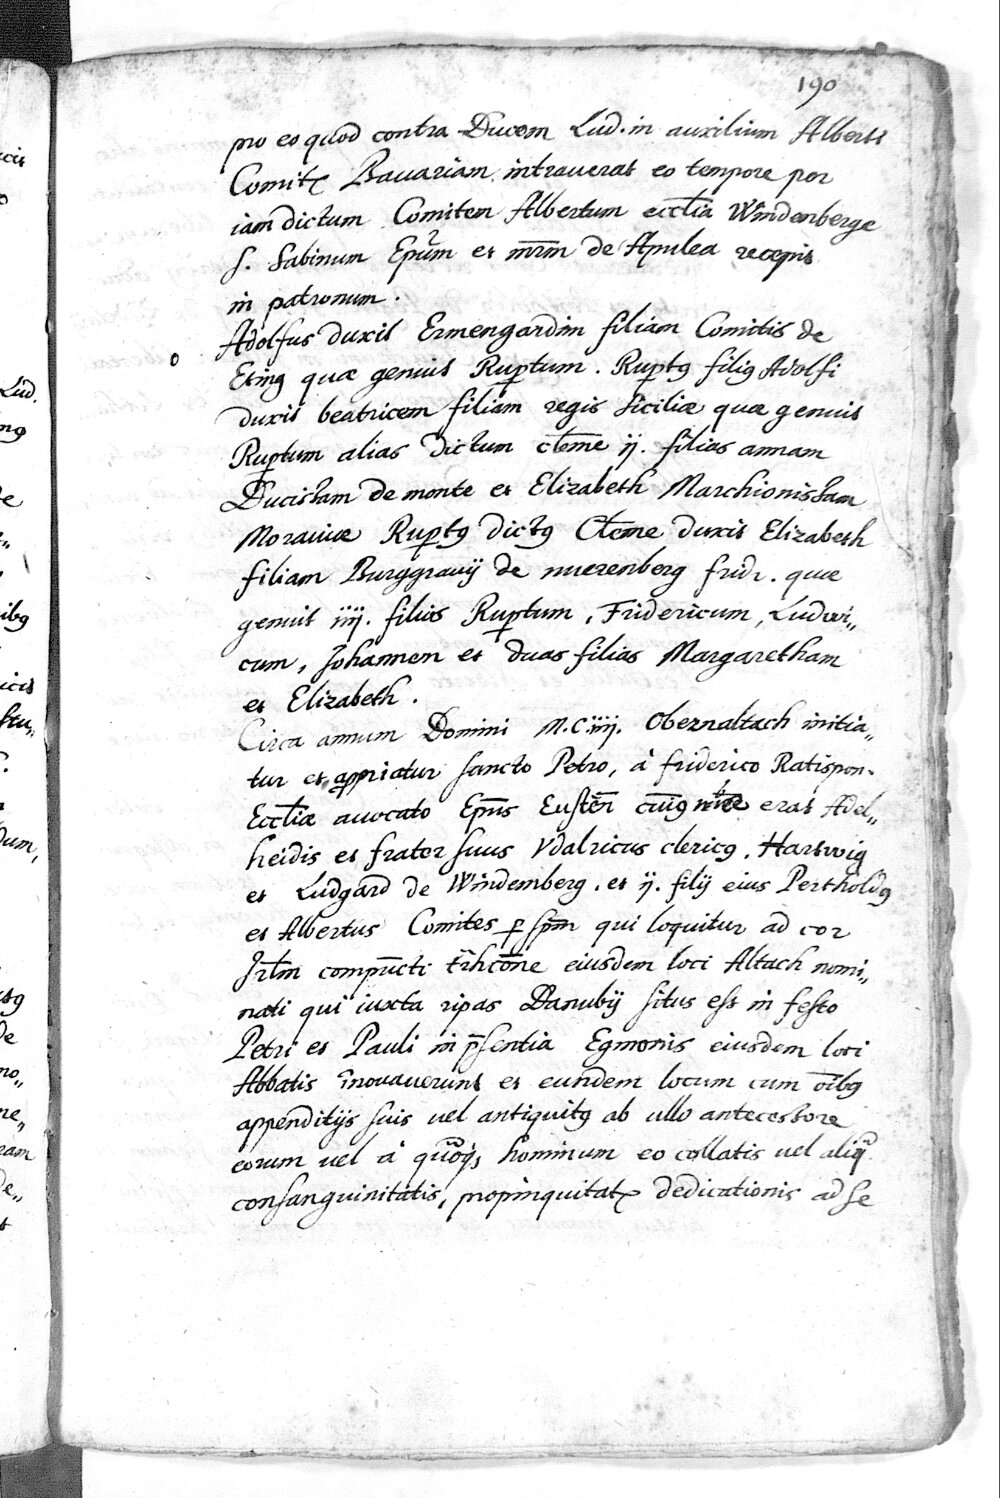 190
pro eo quod contra Ducem Lud. in auxilium Alberti
Comitꝭ Bauariam intrauerat eo tempore per
iam dictum Comitem Albertum eccl̄ia Windenberge
S. Sabinum Ep̄um et m̄rm de Apulea recepit
in patronum.
o Adolfus duxit Ermengardim filiam Comitis de
Eting quæ genuit Ruꝑtum. Ruꝑtꝯ filiꝯ Adolfi
duxit beatricem filiam regis Siciliæ quæ genuit
Ruꝑtum alias dictum cleme ij. filias annam
Ducistam de monte et Elizabeth Marchionistam
Morauiæ Ruꝑtꝯ dictꝯ Cleme duxit Elizabeth
filiam Burggrauij de nuerenberg fridr. quæ
genuit iiij. filios Ruꝑtum, Fridericum, Ludwi„
cum, Johannen et duas filias Margaretham
et Elizabeth.
Circa annum Domini M.C.iiij. Obernaltach initia„
tur et apꝓriatur sancto Petro, à friderico Ratispon.
Eccl̄iæ auocato Ep̄us Eustēn cuiꝯ erat Adel„
heidis et frater suus Vdalricus clericꝯ. Hartwig
et Ludgard de Windemberg. et ij. filij eius Pertholdꝯ
et Albertus Comites ꝑ sp̄m qui loquitur ad cor
Jrl̄m compūcti eiusdem loci Altach nomi„
nati qui iuxta ripas Danubij situs est in festo
Petri et Pauli in p̄sentia Egmonis eiusdem loci
Abbatis īnouauerunt et eundem locum cum oībꝯ
appenditijs suis uel antiquitꝯ ab ullo antecessore
eorum uel à hominum eo collatis uel aliq̄
consanguinitatis, propinquitatꝭ dedicationis ad se